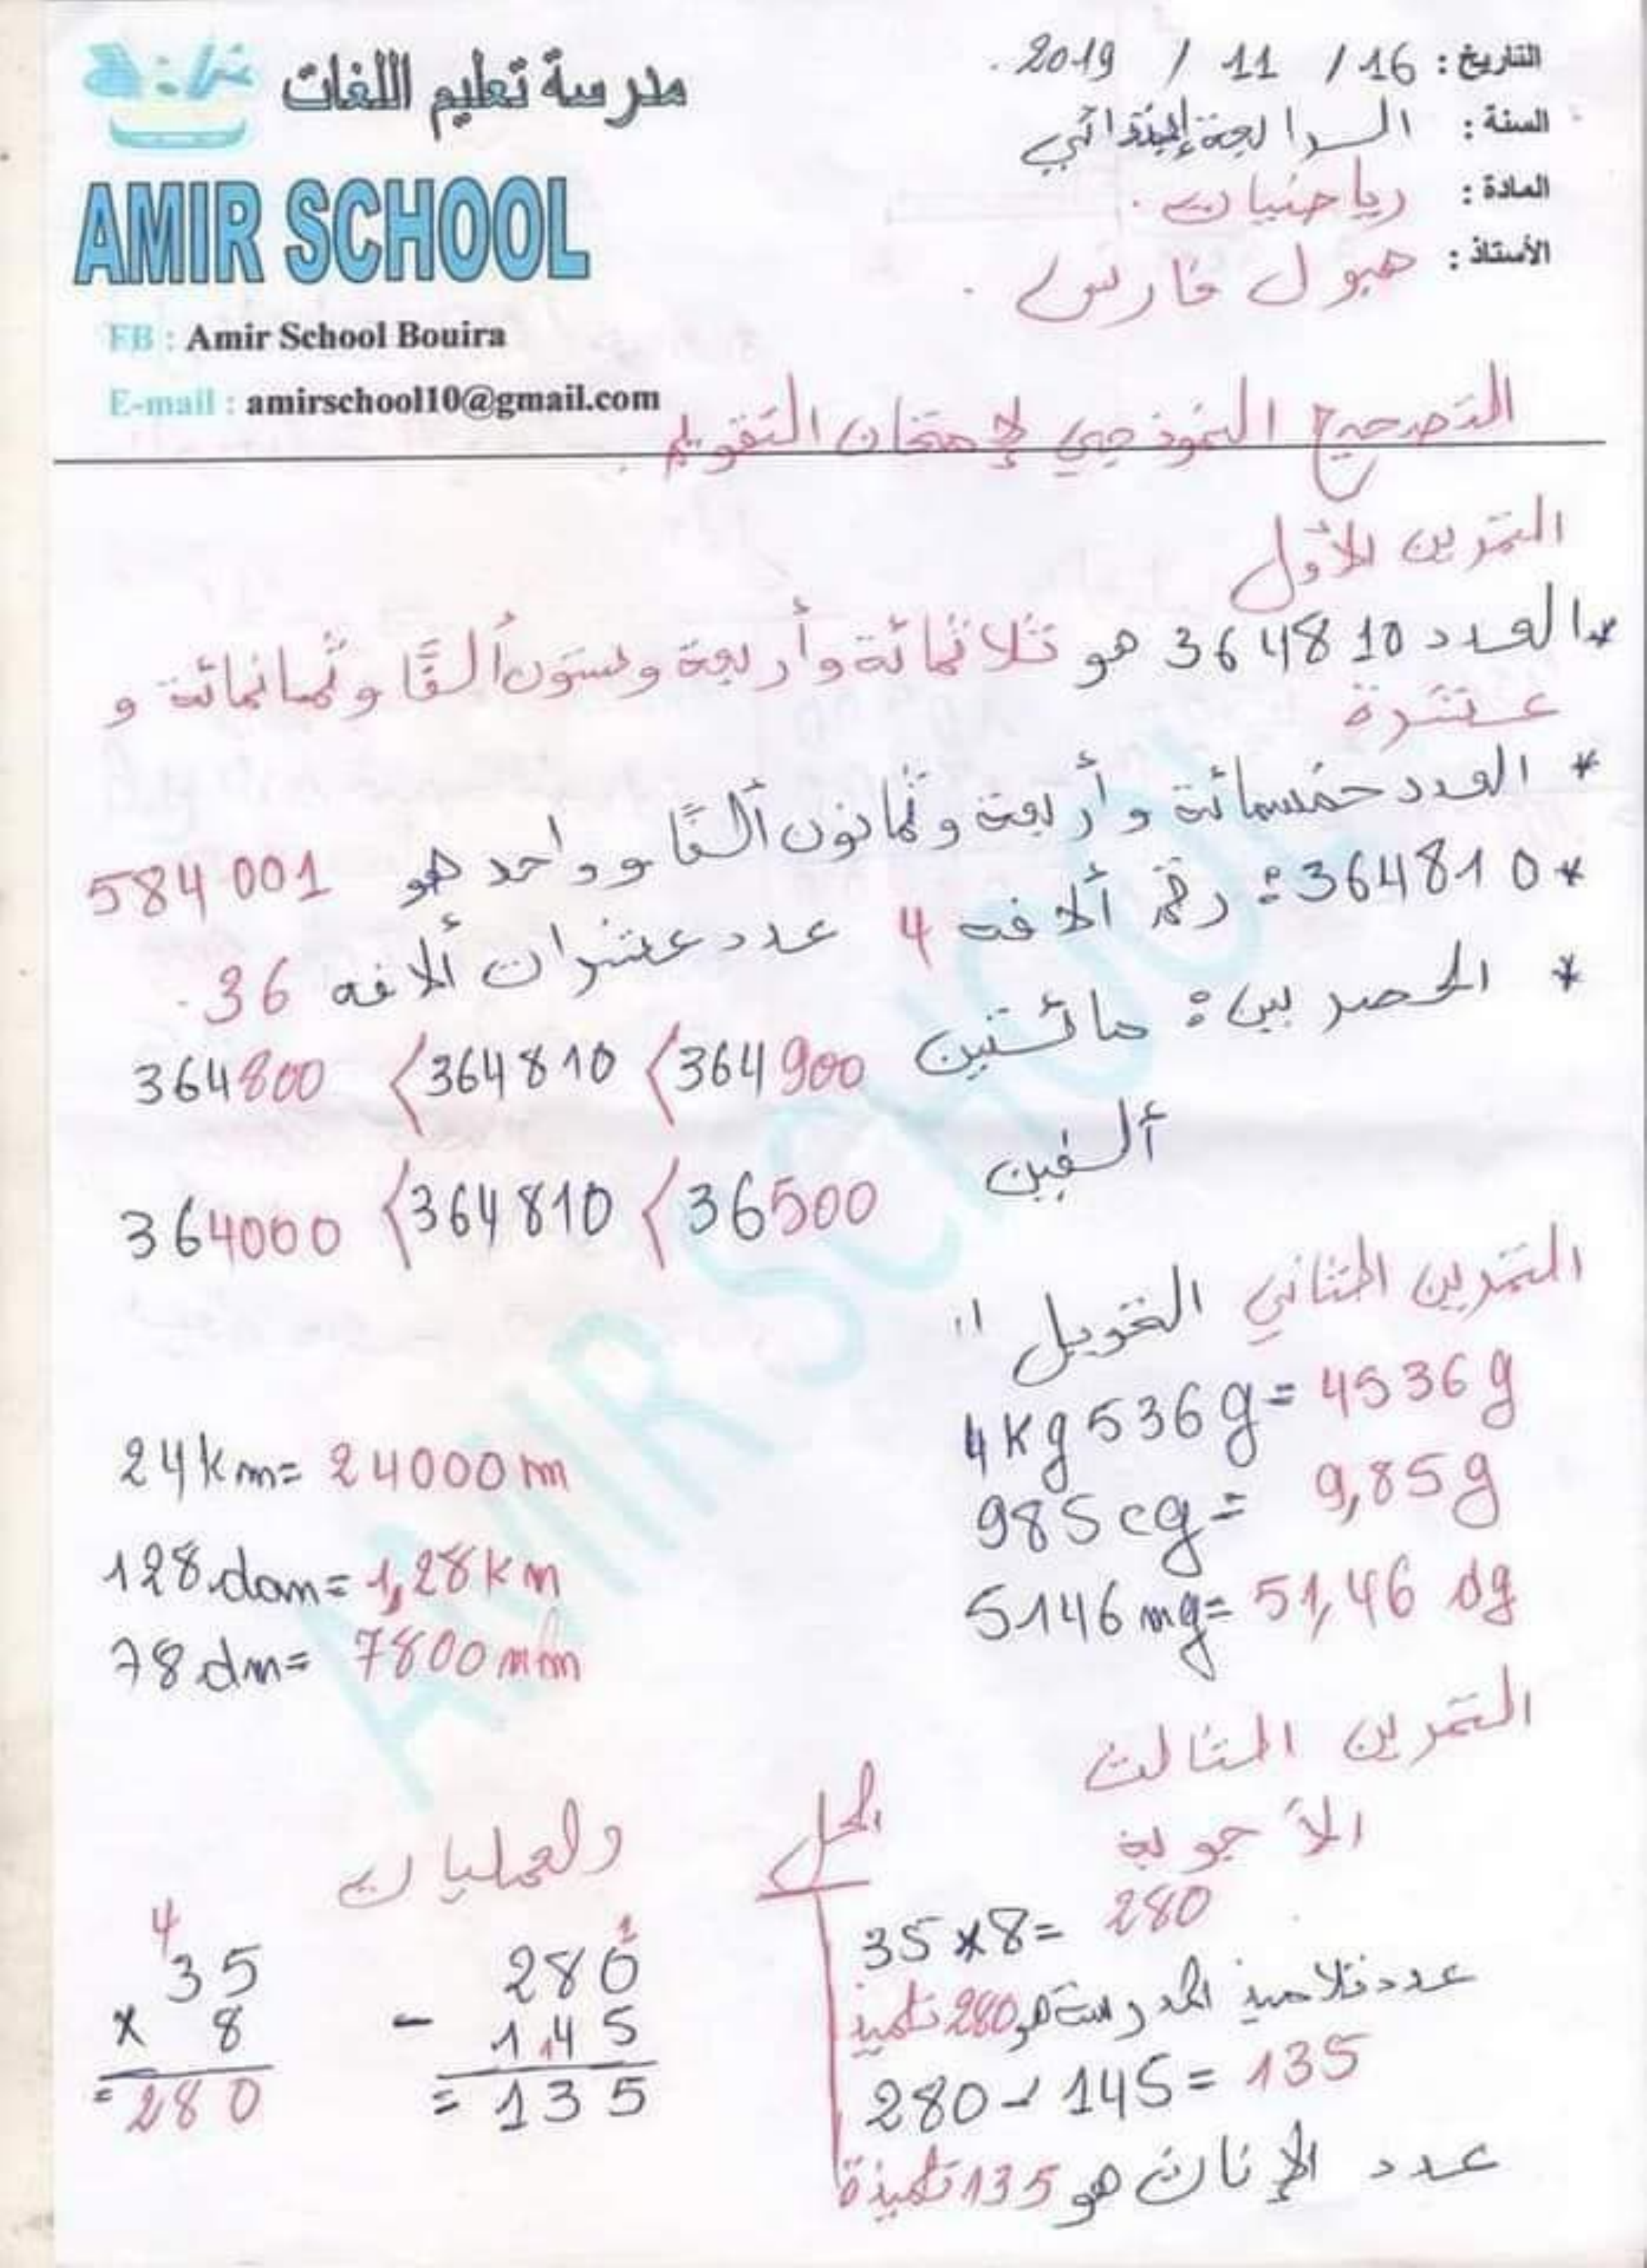 مدرسة تعليم اللغات
AMIR SCHOOL
FB : Amir School Bouira
E-mail : amirschool10@gmail.com
التاريخ : 16 / 11 / 2019.
السنة : الرابعة إبتدائي
المادة : رياضيات.
الأستاذ : هبول فارس.
التصحيح النموذجي لإمتحان التقويم.
التمرين الأول
*العدد 364810 هو ثلاثمائة وأربعة وستون ألفًا وثمانمائة و
عشرة
* العدد خمسمائة وأربعة وثمانون ألفًا وواحد هو 584001
*364810: رقم ألافه 4 عدد عشرات ألافه 36.
* الحصر بين: مائتين 364800 〈364810 〈364900
ألفين 364000 〈364810 〈36500
التمرين الثاني التحويل :
4kg 536g = 4536g
985cg = 9,85g
5146mg = 51,46 dg
24km = 24000m
128dam = 1,28km
78dm = 7800mm
التمرين الثالث
الحل
الأجوبة
35×8= 280
عدد تلاميذ المدرسة هو 280 تلميذ
280-145= 135
عدد الإناث هو 135 تلميذة
العمليات
1
280
- 1 1 4 5
= 135
4
35
× 8
= 280
AMIR SCHOOL